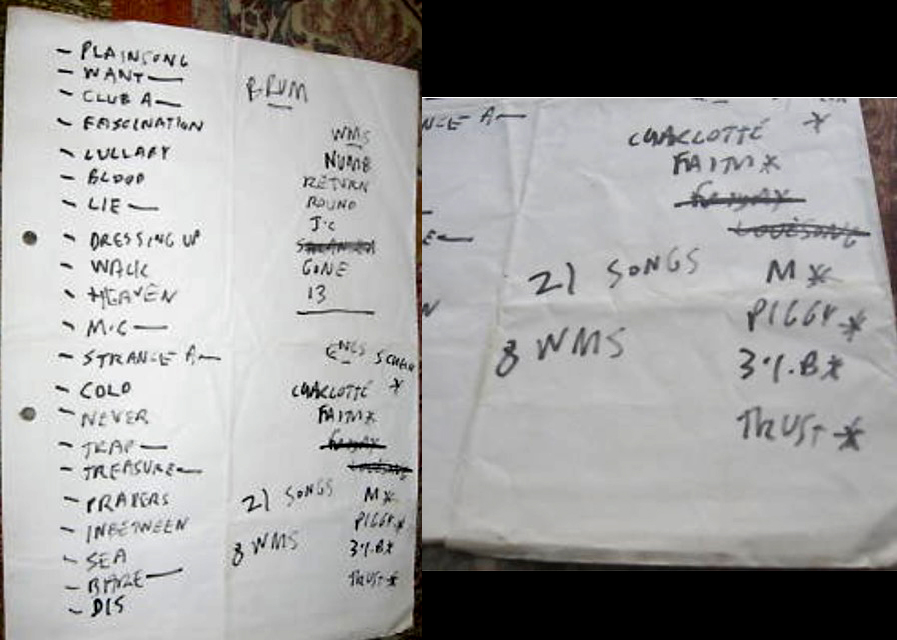 - PLAINSONG
- WANT —
- CLUB A —
- FASCINATION
- LULLABY
- BLOOD
- LIE —
- DRESSING UP
- WALK
- HEAVEN
- M.C —
- STRANGE A —
- COLD
- NEVER
- TRAP —
- TREASURE —
- PRAYERS
- INBETWEEN
- SEA
- BARE —
- DIS
BRUM
WMS
NUMB
RETURN
ROUND
J.C
GONE
13
CHARLOTTE *
FAITH *
FRIDAY
LOVESONG
21 SONGS
M *
PIGGY *
8 WMS
3%.B *
TRUST *
NGE A —
CHARLOTTE *
FAITH *
FRIDAY
LOVESONG
E —
21 SONGS
M *
PIGGY *
8 WMS
3%.B *
TRUST *